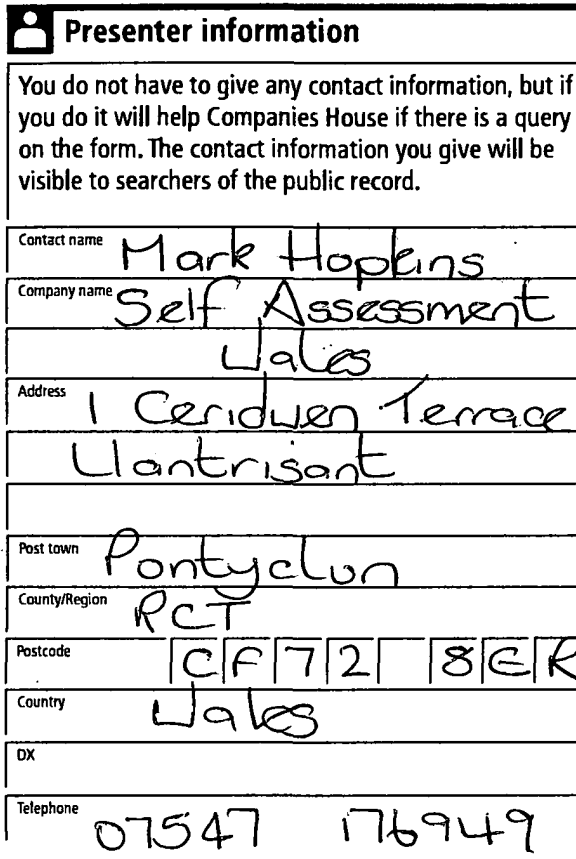 Presenter information
You do not have to give any contact information, but if
you do it will help Companies House if there is a query
on the form. The contact information you give will be
visible to searchers of the public record.
Contact name Mark Hopkins
Company name Self Assessment
Wales
Address 1 Ceridwen Terrace
Llantrisant
Post town Pontyclun
County/Region RCT
Postcode CF72 8ER
Country Wales
DX
Telephone 07547 176949